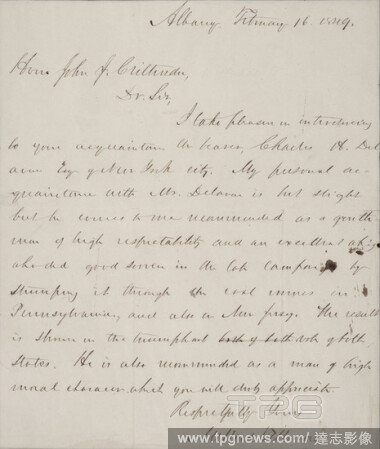 Albany. February 16. 1849.
Hon. John J. Crittenden,
Dr. Sir,
I take pleasure in introducing
to your acquaintance the bearer, Charles H. Del
avan Esq of New York city. My personal ac-
quaintance with Mr. Delavan is but slight
but he comes to me recommended as a gentle
man of high respectability and an excellent whig
who did good service in the late campaign by
stumping it through the coal mines in
Pennsylvania, and also in New Jersey. The result
is shown in the triumphant vote of both
states. He is also recommended as a man of high
moral character which you will duly appreciate.
Respectfully Yours
TPG
www.tpgnews.com/達志影像